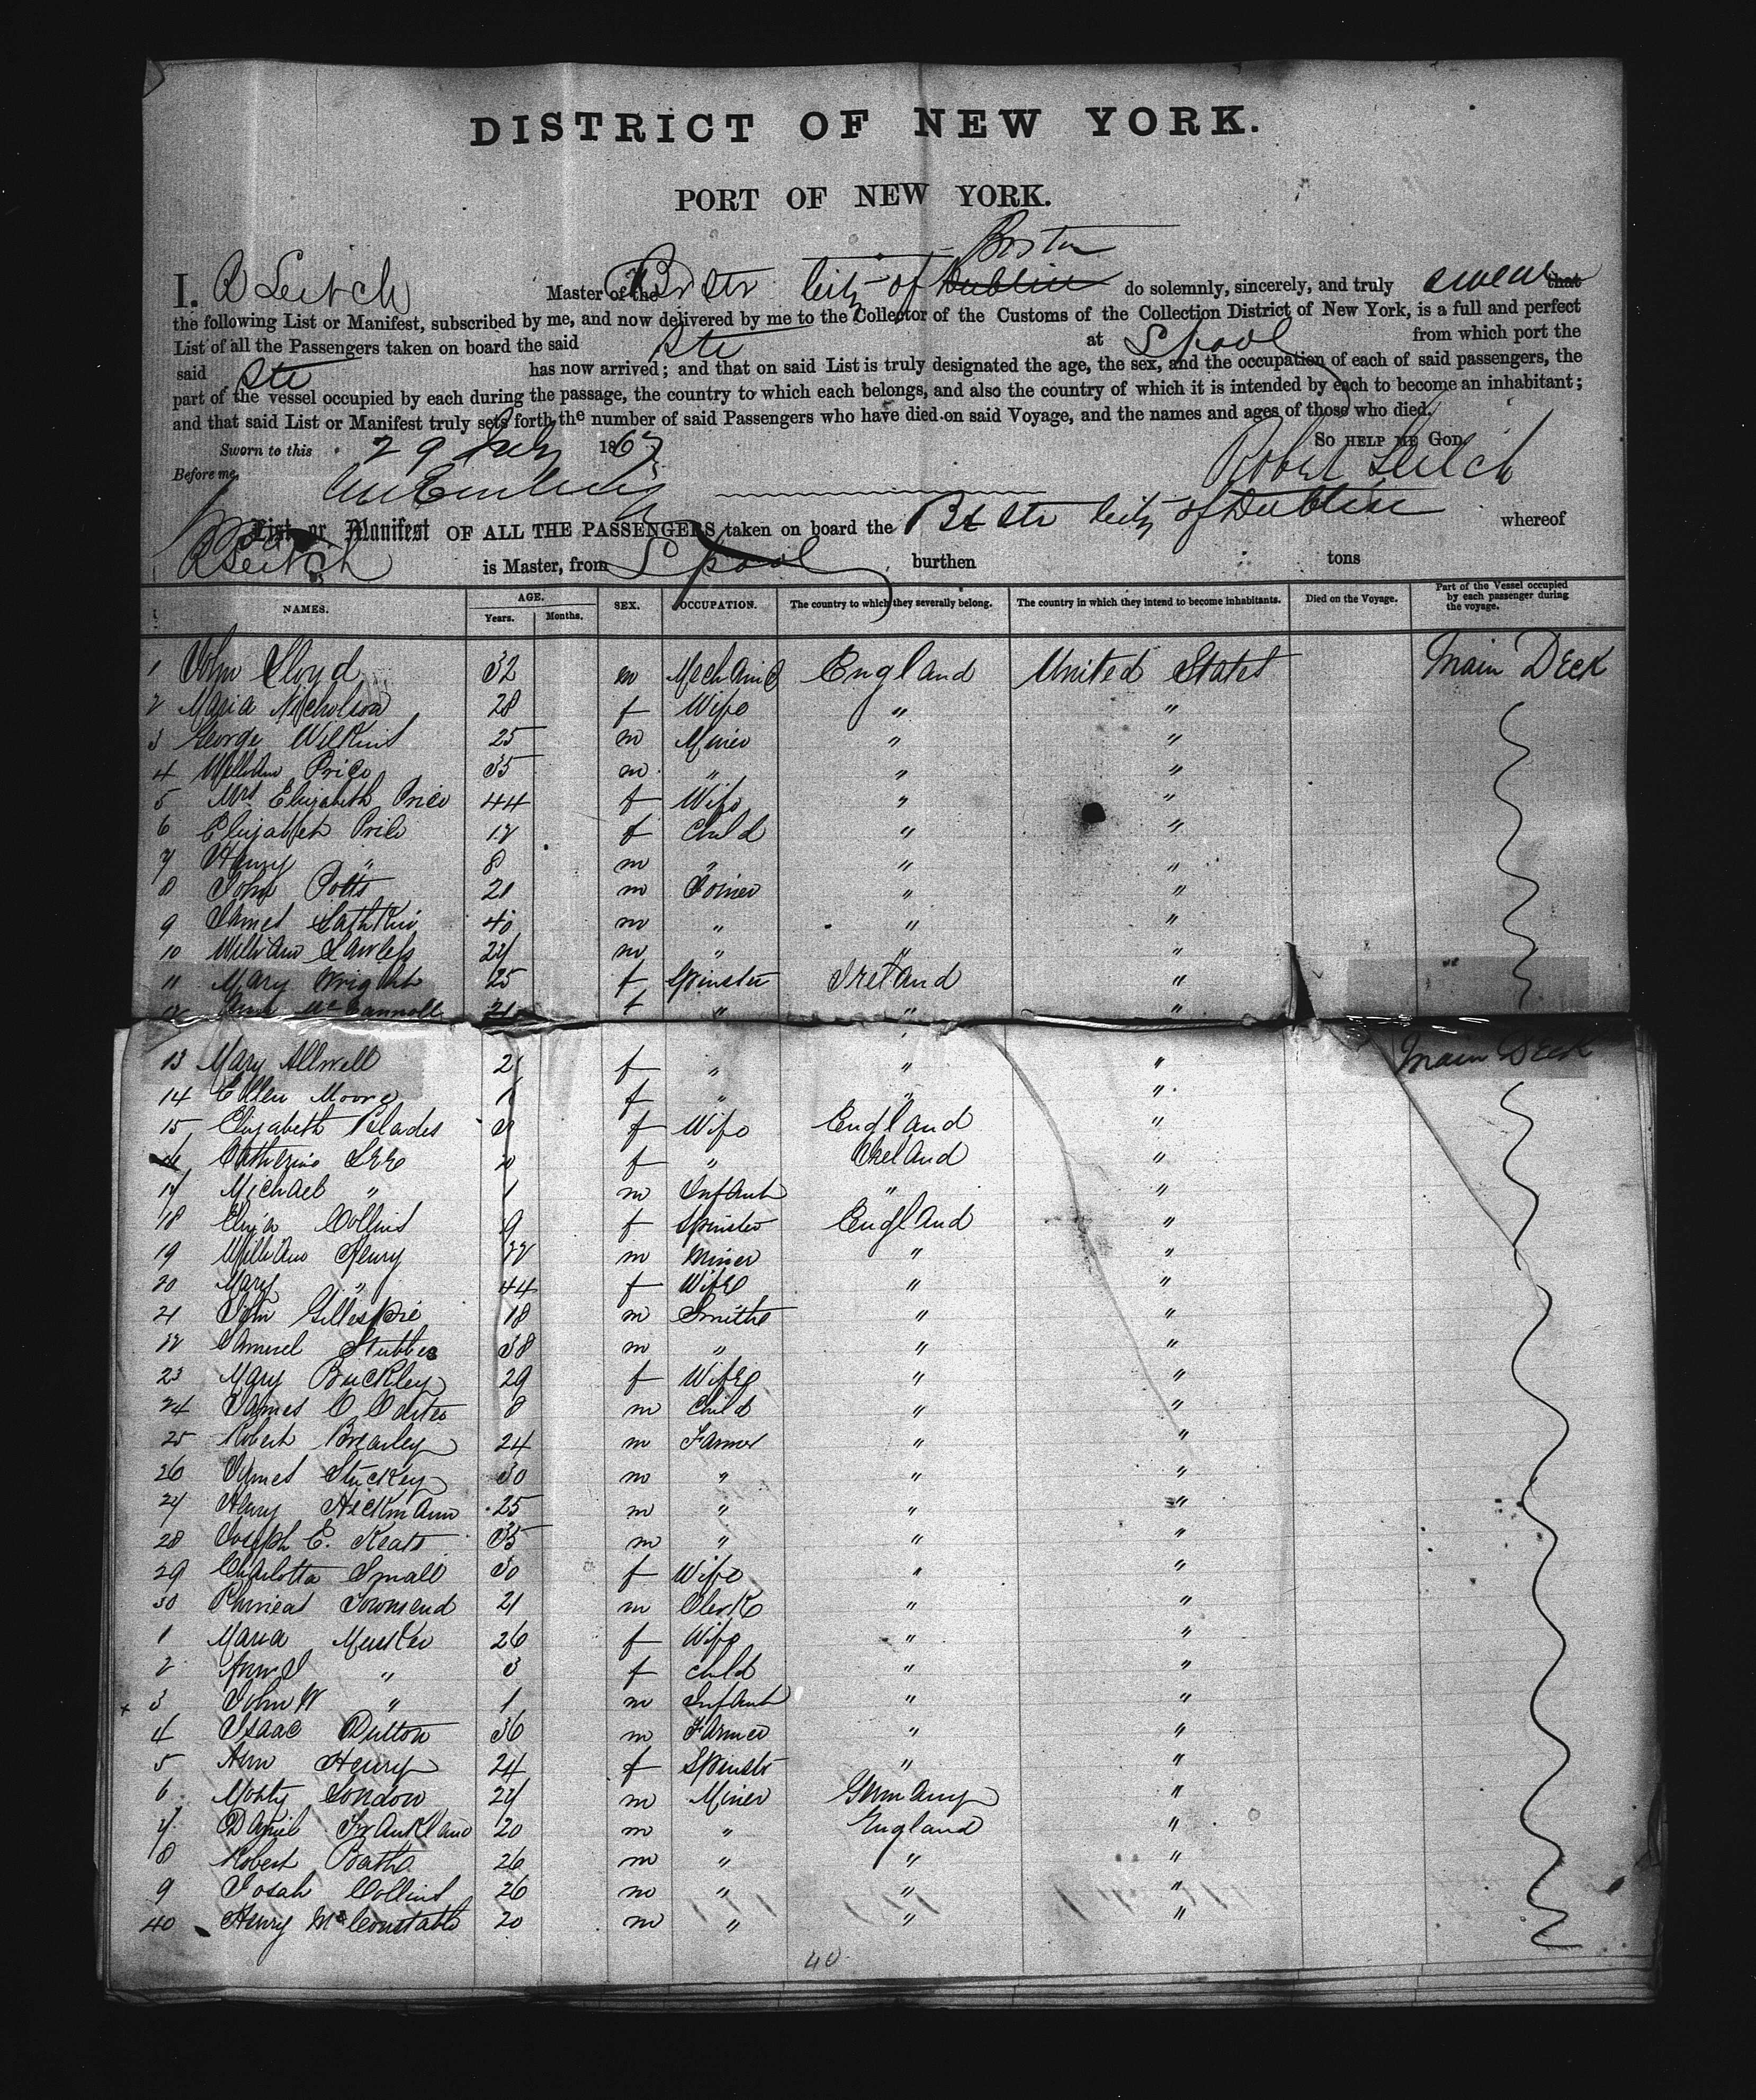 DISTRICT OF NEW YORK.
PORT OF NEW YORK.
Boston
I, R Leitch Master of the Br Str City of Dublin do solemnly, sincerely, and truly swear that
the following List or Manifest, subscribed by me, and now delivered by me to the Collector of the Customs of the Collection District of New York, is a full and perfect
List of all the Passengers taken on board the said Str at Lpool from which port the
said Str has now arrived; and that on said List is truly designated the age, the sex, and the occupation of each of said passengers, the
part of the vessel occupied by each during the passage, the country to which each belongs, and also the country of which it is intended by each to become an inhabitant;
and that said List or Manifest truly sets forth the number of said Passengers who have died on said Voyage, and the names and ages of those who died.
So help me God.
Sworn to this 29 July 1867
Before me, Robert Leitch
List or Manifest OF ALL THE PASSENGERS taken on board the Br Str City of Dublin whereof
R Leitch is Master, from Lpool burthen tons
NAMES. AGE. Years. Months. SEX. OCCUPATION. The country to which they severally belong. The country in which they intend to become inhabitants. Died on the Voyage. Part of the Vessel occupied by each passenger during the voyage.
1 John Lloyd 32 m Mechanic England United States Main Deck
2 Maria Nicholson 28 f Wife " "
3 George Wilkins 25 m Miner " "
4 William Price 35 m " " "
5 Mrs Elizabeth Price 44 f Wife " "
6 Elizabeth Price 12 f Child " "
7 Henry " 8 m " " "
8 John Potts 21 m Joiner " "
9 James 40 m " " "
10 William Lawless 24 m " " "
11 Mary Wright 25 f Spinster Ireland "
12 Ann McConnell 21 f " " "
13 Mary Allwell 2 f " " " Main Deck
14 Ellen Moore f " " "
15 Elizabeth Blades f Wife England "
16 Catherine Lee f " Ireland "
17 Michael " 1 m Infant " "
18 Eliza Collins 9 f Spinster England "
19 William Henry m Miner " "
20 Mary " 44 f Wife " "
21 John Gillespie 18 m Smith " "
22 Samuel Stubbs 38 m " " "
23 Mary Buckley 29 f Wife " "
24 James C 8 m Child " "
25 Robert Brearley 24 m Farmer " "
26 James Stuckey 30 m " " "
27 Henry Heckmann 25 m " " "
28 Joseph E. Keats 35 m " " "
29 Charlotta Small 30 f Wife " "
30 Phineas Townsend 21 m Clerk " "
1 Maria 26 f Wife " "
2 Ann J " 3 f Child " "
3 John W " 1 m Infant " "
4 Isaac Dutton 36 m Farmer " "
5 Ann Henry 24 f Spinster " "
6 London 24 m Miner Germany "
7 Daniel Frankland 20 m " England "
8 Robert Bath 26 m " " "
9 Josah Collins 26 m " " "
40 Henry McConstable 20 m " " "
40